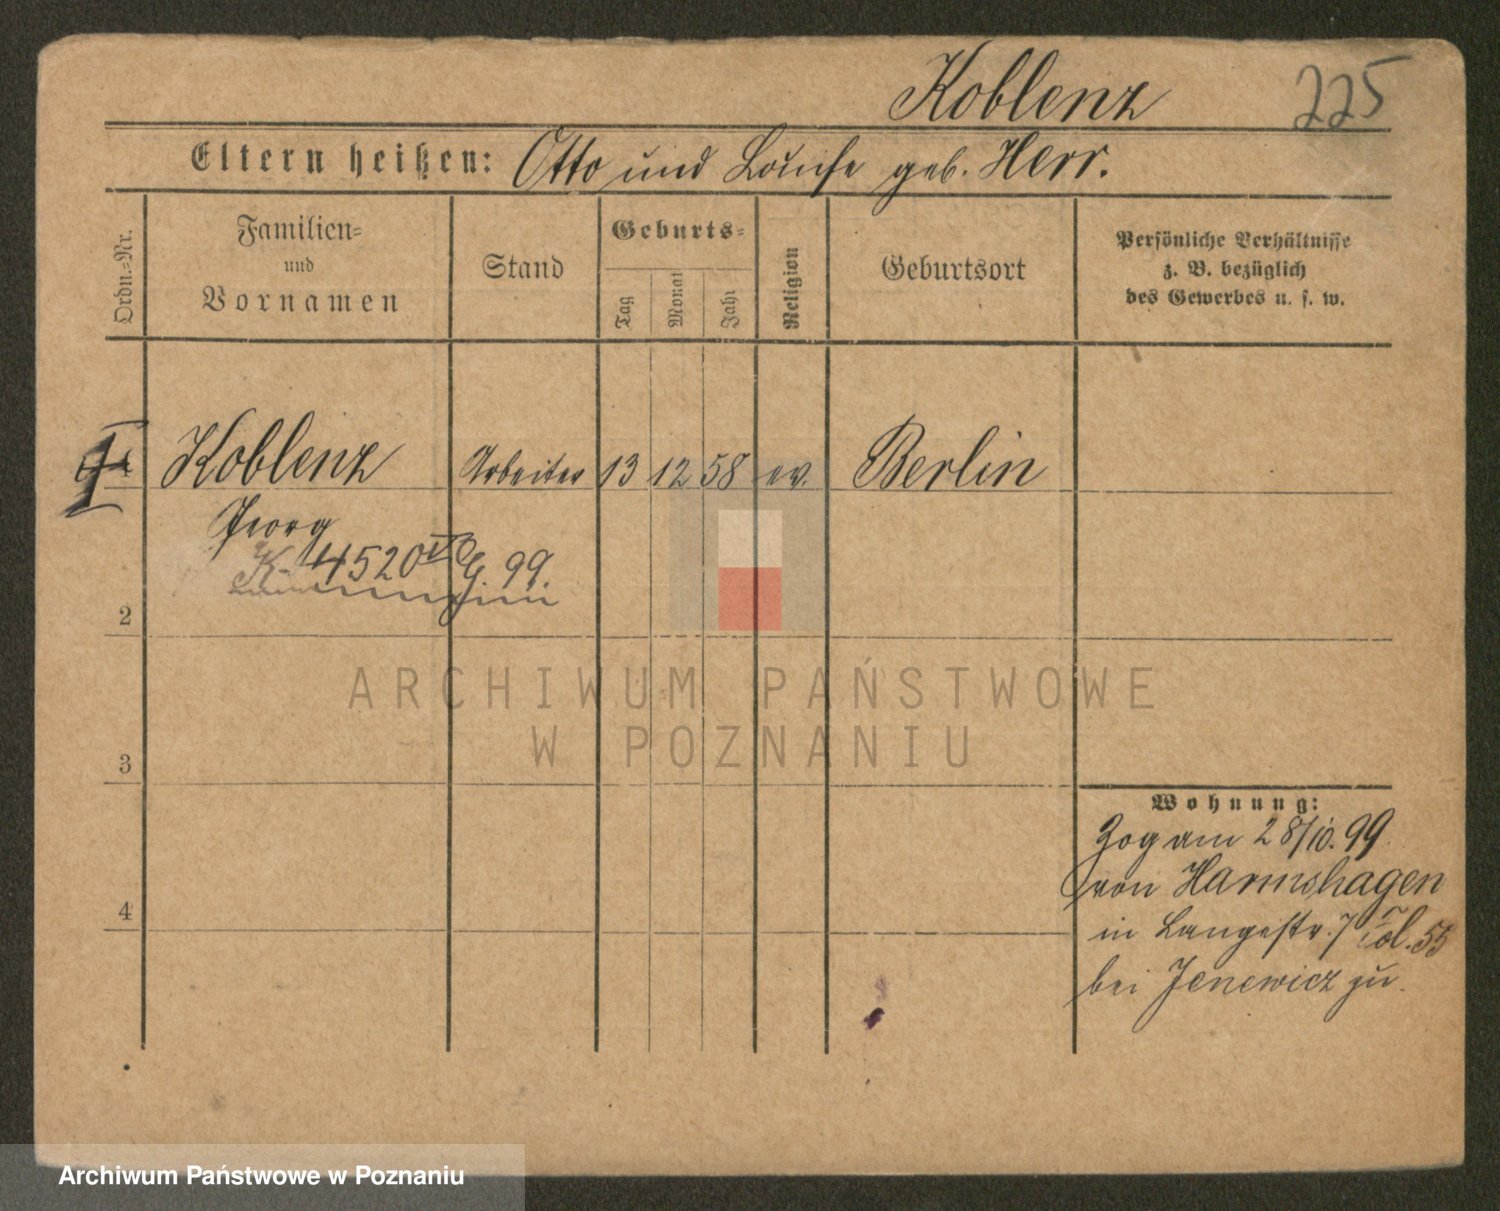 Koblenz 225
Eltern heißen: Otto und Louise geb. Herr.
Ordn.=Nr.
Familien=
und
Vornamen
Stand
Geburts=
Tag
Monat
Jahr
Religion
Geburtsort
Persönliche Verhältnisse
z. B. bezüglich
des Gewerbes u. s. w.
1 Koblenz Arbeiter 13 12 58 ev. Berlin
Georg
K. 4520 G. 99.
2
3
4
Wohnung:
Zog am 28/10. 99
von Harmshagen
in Langestr. 7 Tol. 55
bei Jenewicz zu.
ARCHIWUM PAŃSTWOWE
W POZNANIU
Archiwum Państwowe w Poznaniu